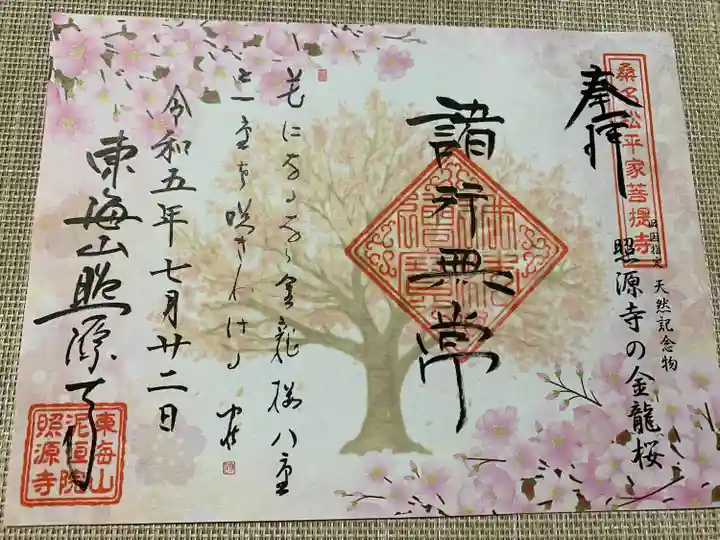 桑名松平家菩提寺
奉拝
旧国指定
天然記念物
照源寺の金龍桜
諸行無常
金龍桜八重
一重
咲き
令和五年七月廿二日
東海山照源寺
東海山
泥洹院
照源寺